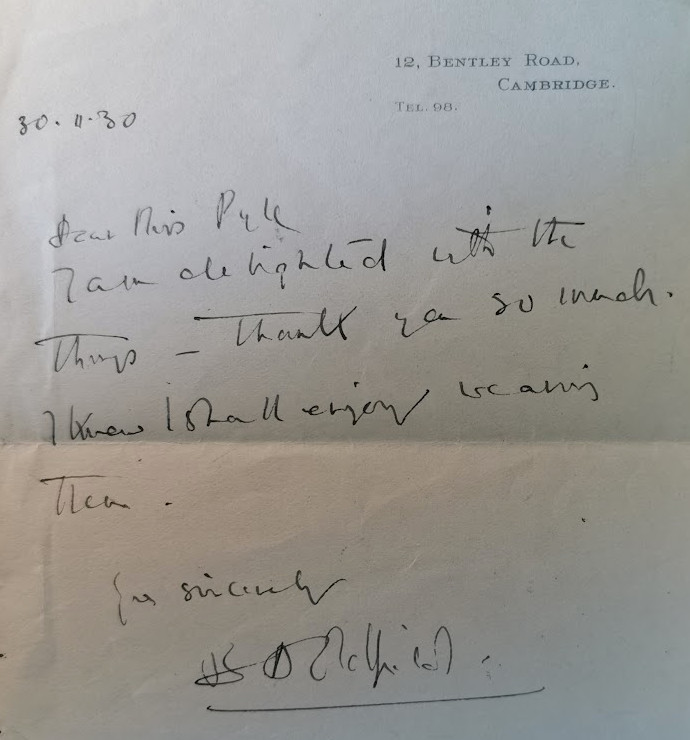 12, BENTLEY ROAD,
CAMBRIDGE.
TEL. 98.
30.11.30
Dear Miss Pyke
I am delighted with the
things – Thank you so much.
I know I shall enjoy wearing
them.
Yrs sincerely
Oldfield.